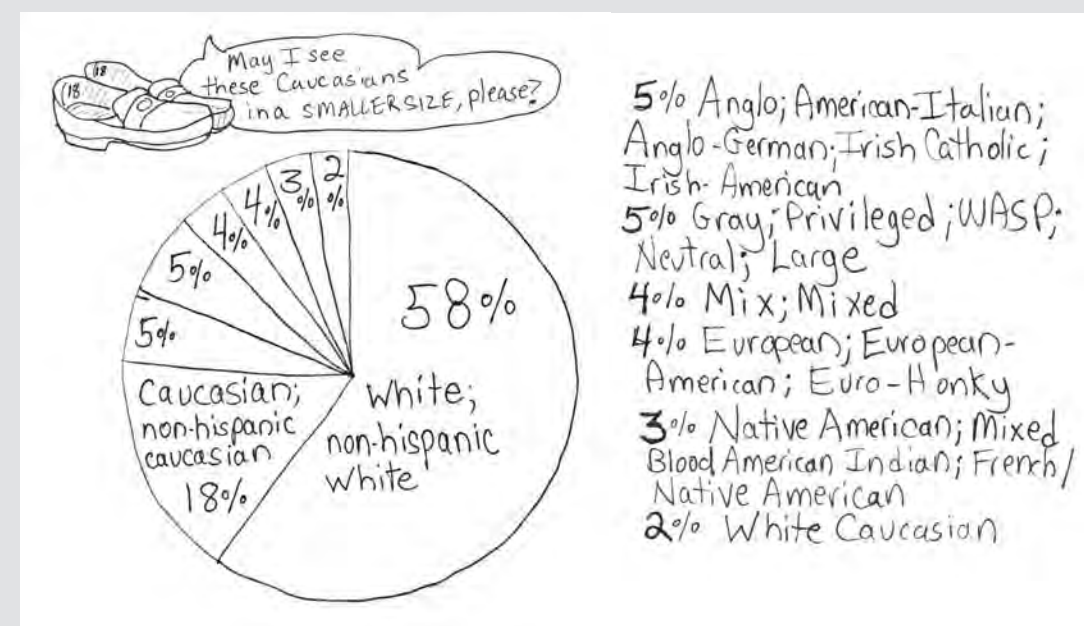 18
18
May I see
these Caucasians
in a SMALLER SIZE, please?
2%
3%
4%
4%
5%
5%
58%
White;
non-hispanic
White
Caucasian;
non-hispanic
caucasian
18%
5% Anglo; American-Italian;
Anglo-German; Irish Catholic;
Irish-American
5% Gray; Privileged; WASP;
Neutral; Large
4% Mix; Mixed
4% European; European-
American; Euro-Honky
3% Native American; Mixed
Blood American Indian; French/
Native American
2% White Caucasian